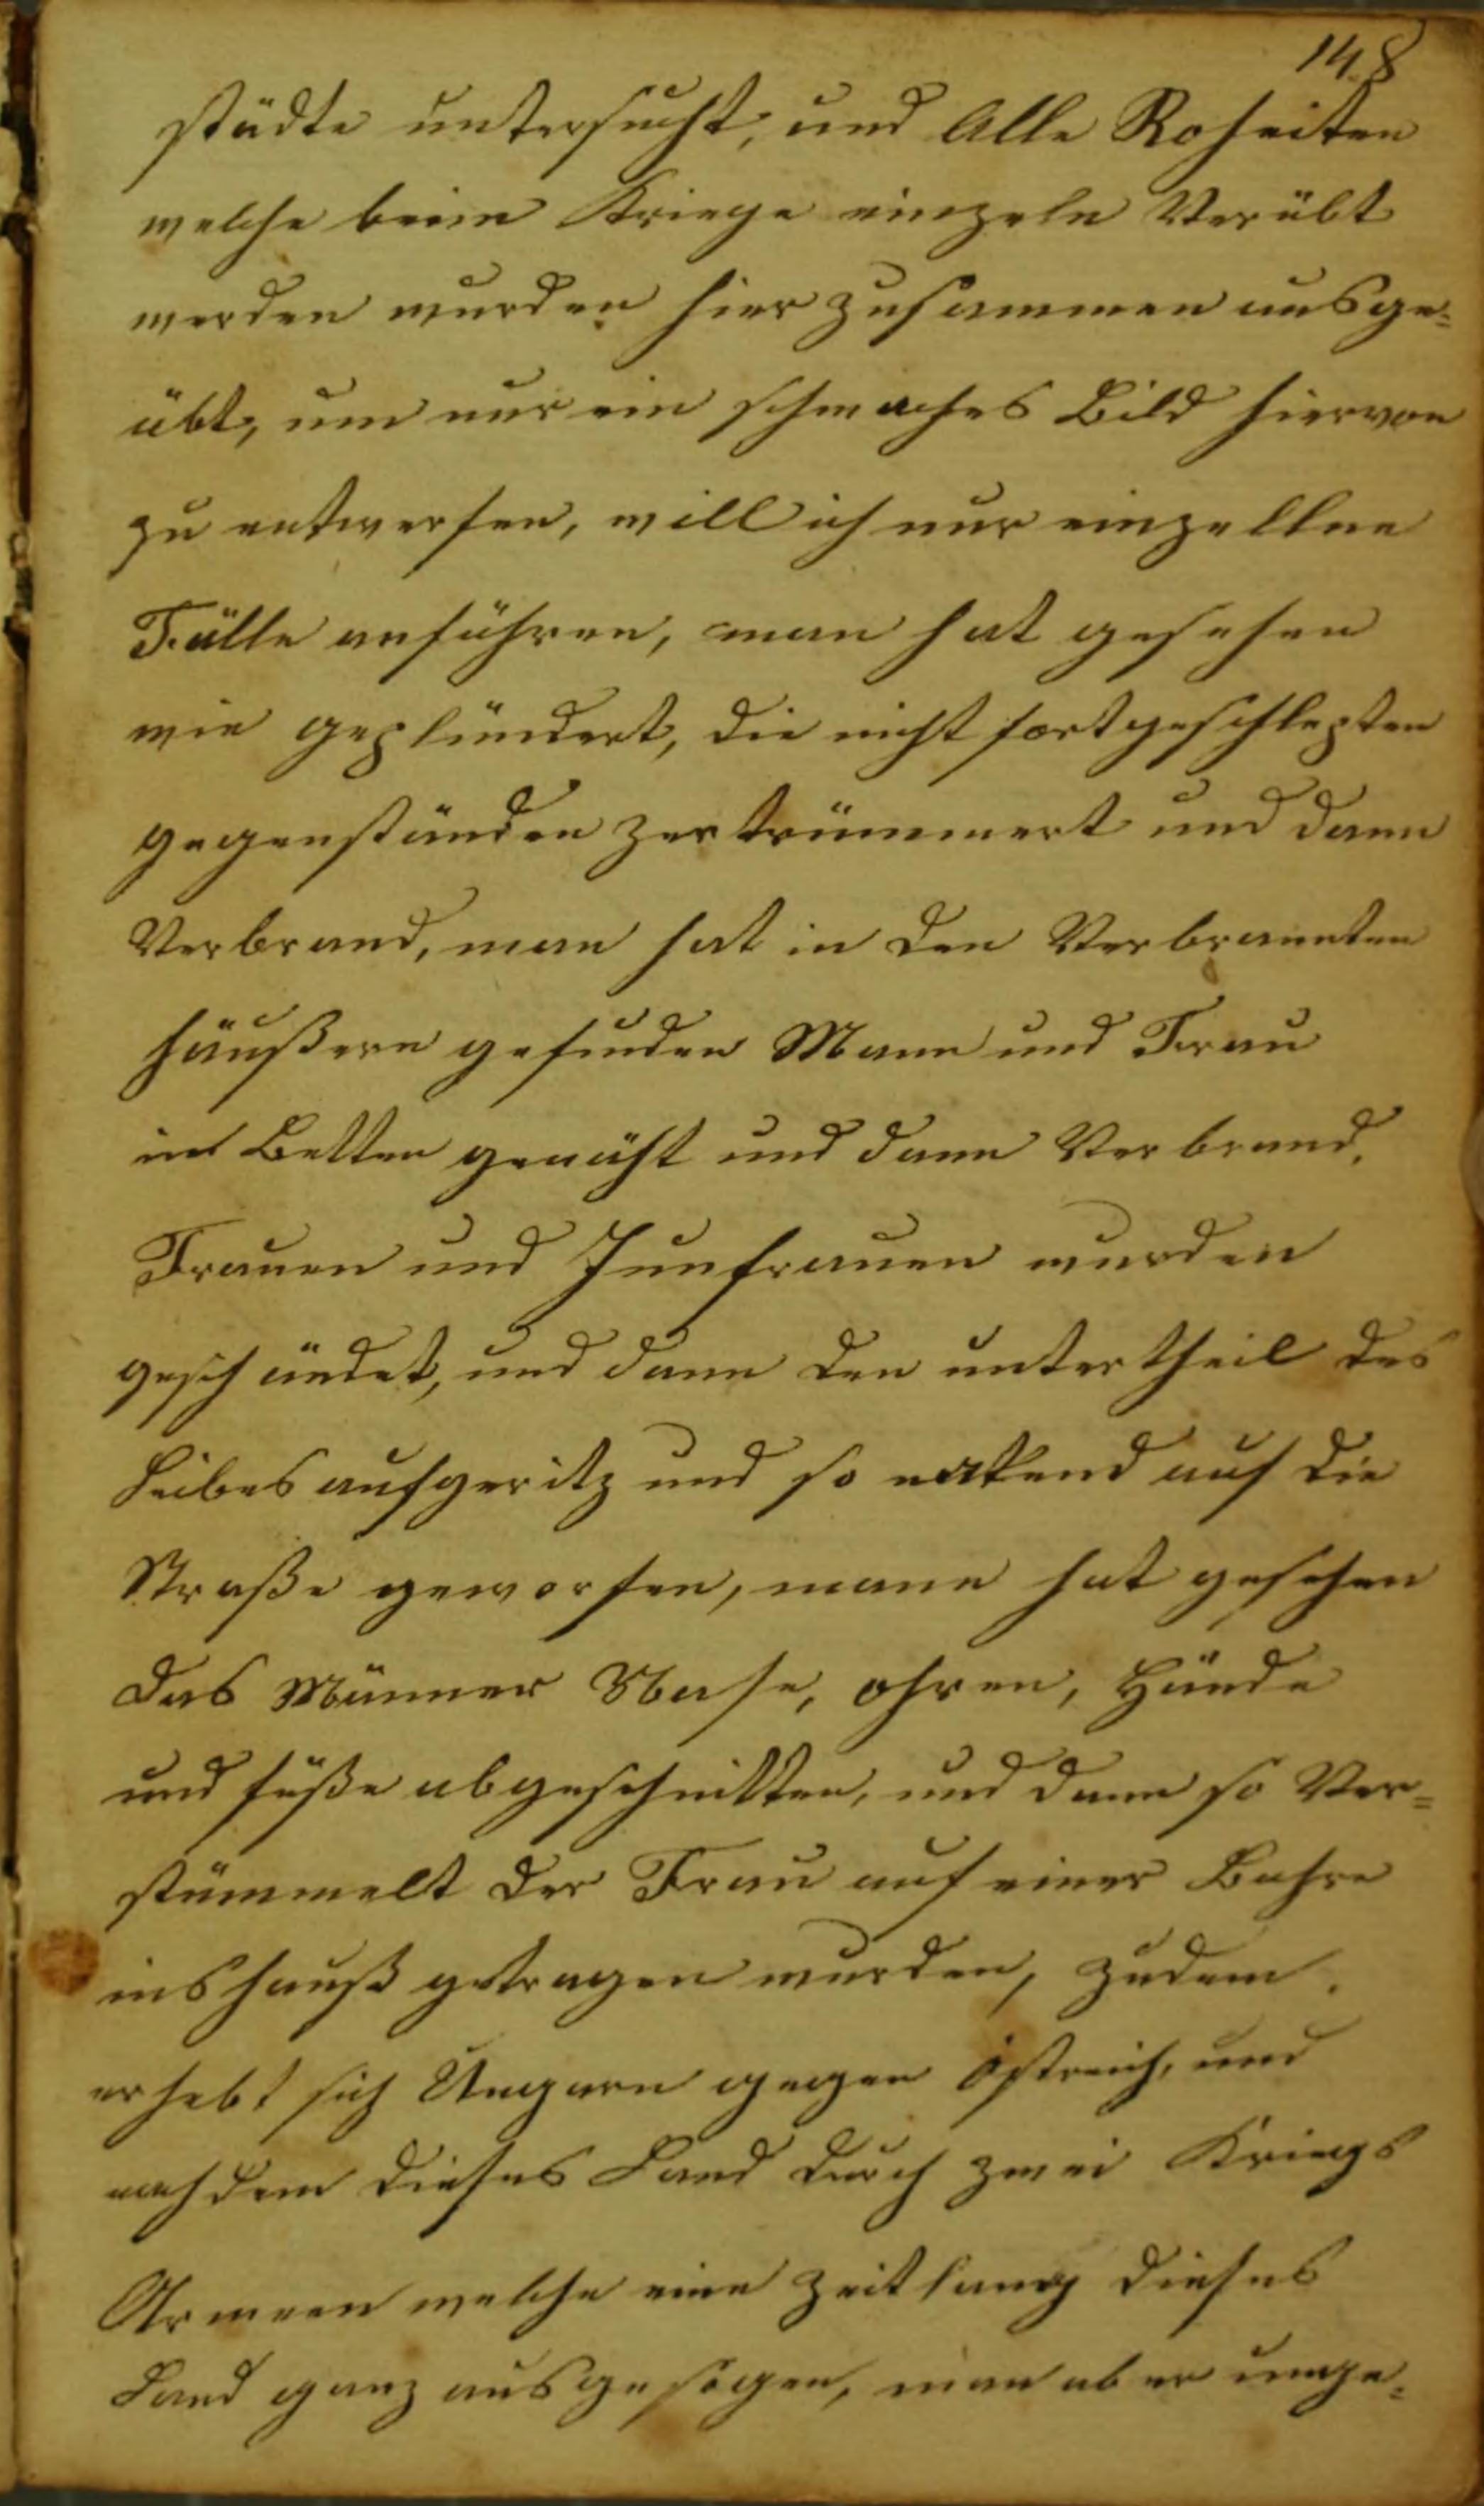 148
städte untersucht, und Alle Roheiten
welche beim Kriege einzeln Verübt
werden wurden hier zusammen ausge=
übt, um nur ein schwaches Bild hiervon
zu entwerfen, will ich nur einzellne
Fälle anführen, man hat gesehen
wie geplündert, die nicht fortgeschlepten
gegenständen zertrümmert und dann
Verbrand, man hat in den Verbrannten
häußern gefunden Mann und Frau
in Betten genäht und dann Verbrand,
Frauen und Junfrauen wurden
geschändet, und dann den untertheil des
Leibes aufgeritz und so nakend auf die
Straße geworfen, mann hat gesehen
das Männer Nase, ohren, Hände
und füße abgeschnitten, und dann so Ver=
stümmelt der Frau auf einer Bahre
ins hauß getragen wurden, zudem
erhebt sich Ungarn gegen Östreich, und
nachdem dieses Land durch zwei Kriegs
Armeen welche eine zeitlang dieses
Land ganz ausgesogen, man aber unge=